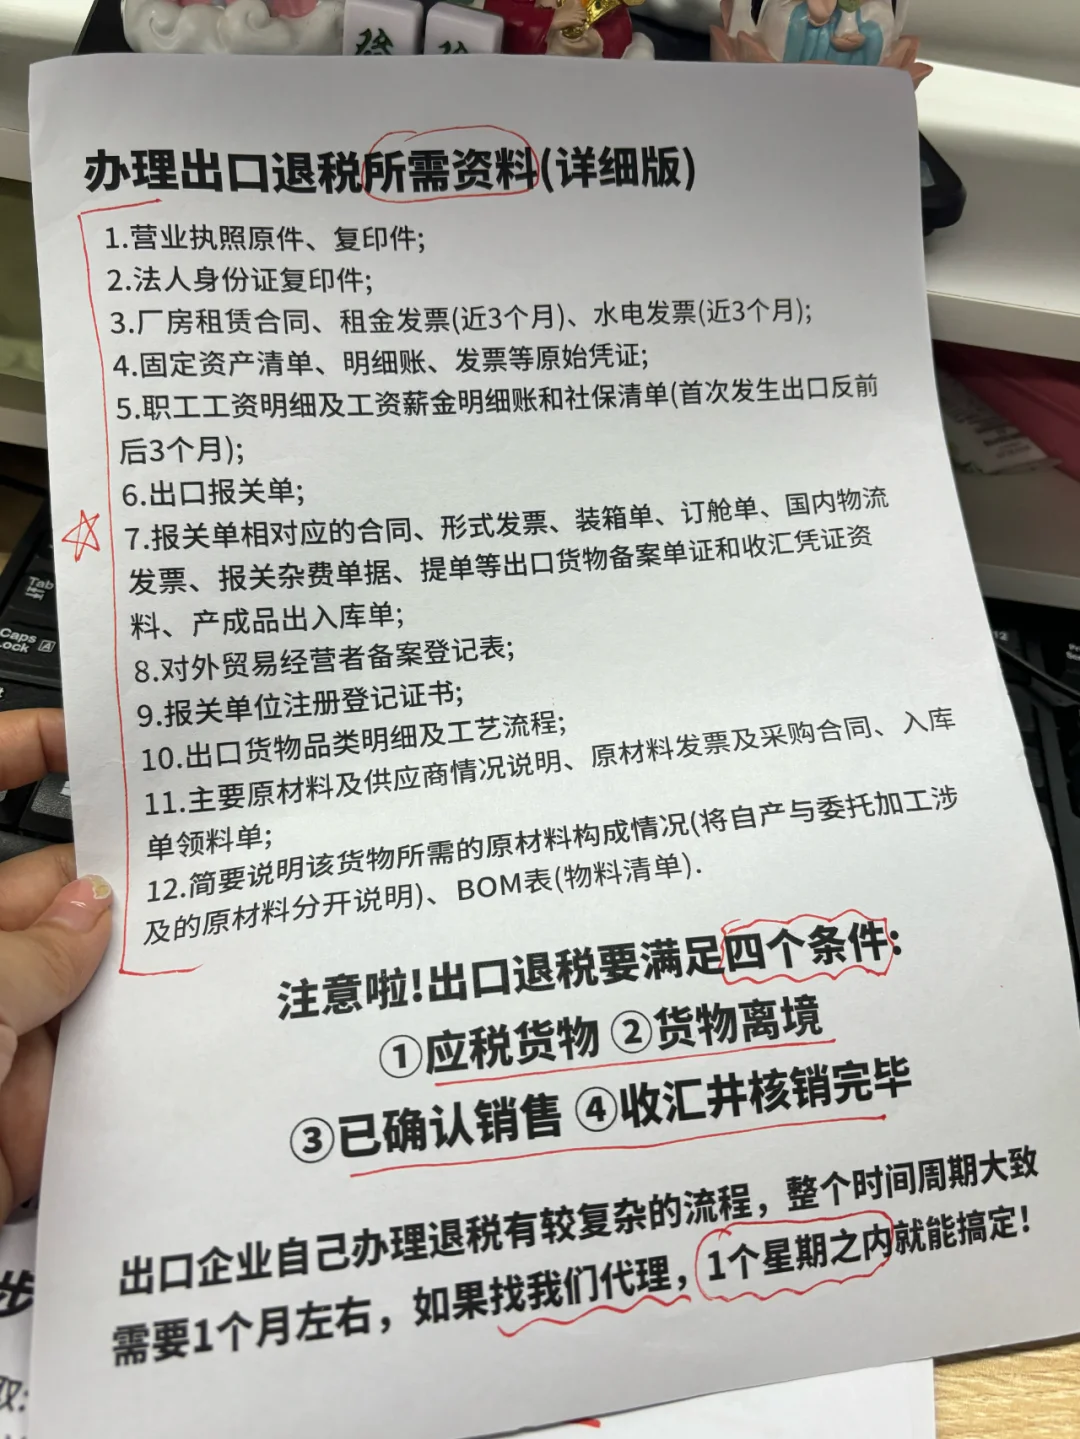 办理出口退税所需资料(详细版)
1.营业执照原件、复印件;
2.法人身份证复印件;
3.厂房租赁合同、租金发票(近3个月)、水电发票(近3个月);
4.固定资产清单、明细账、发票等原始凭证;
5.职工工资明细及工资薪金明细账和社保清单(首次发生出口反前
后3个月);
6.出口报关单;
7.报关单相对应的合同、形式发票、装箱单、订舱单、国内物流
发票、报关杂费单据、提单等出口货物备案单证和收汇凭证资
料、产成品出入库单;
8.对外贸易经营者备案登记表;
9.报关单位注册登记证书;
10.出口货物品类明细及工艺流程;
11.主要原材料及供应商情况说明、原材料发票及采购合同、入库
单领料单;
12.简要说明该货物所需的原材料构成情况(将自产与委托加工涉
及的原材料分开说明)、BOM表(物料清单).
注意啦!出口退税要满足四个条件:
①应税货物 ②货物离境
③已确认销售 ④收汇井核销完毕
出口企业自己办理退税有较复杂的流程，整个时间周期大致
需要1个月左右，如果找我们代理，1个星期之内就能搞定!
Tab
Caps
Lock
A
步
取:
12
發